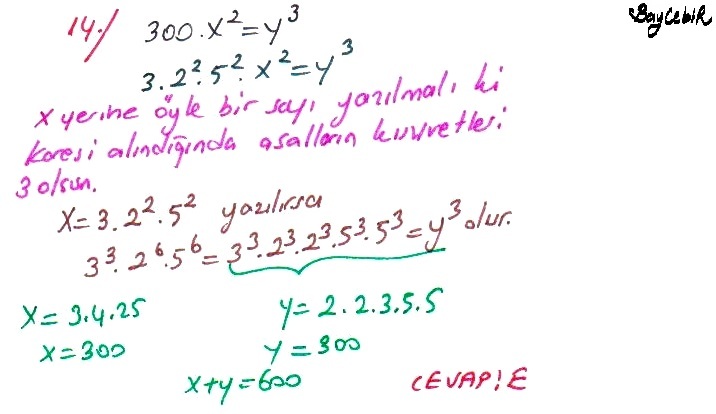 BaycebiR
14./ 300.x² = y³
3.2².5².x² = y³
x yerine öyle bir sayı yazılmalı ki
karesi alındığında asalların kuvvetleri
3 olsun.
x = 3.2².5² yazılırsa
3³.2⁶.5⁶ = 3³.2³.2³.5³.5³ = y³ olur.
x = 3.4.25 y = 2.2.3.5.5
x = 300 y = 300
x+y = 600 CEVAP: E